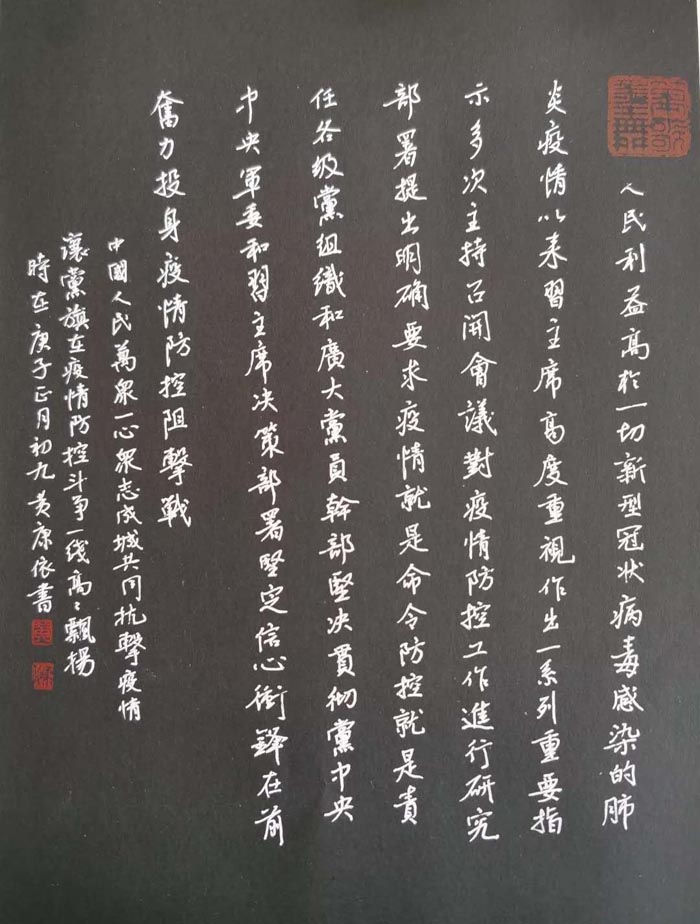 人民利益高於一切新型冠状病毒感染的肺
炎疫情以来習主席高度重視作出一系列重要指
示多次主持召開會議對疫情防控工作進行研究
部署提出明确要求疫情就是命令防控就是責
任各级黨组織和廣大黨員幹部堅决貫彻黨中央
中央軍委和習主席决策部署堅定信心衝鋒在前
奮力投身疫情防控阻擊戰
中國人民萬衆一心衆志成城共同抗擊疫情
讓黨旗在疫情防控斗争一线高々飄揚
時在庚子正月初九黄康依書